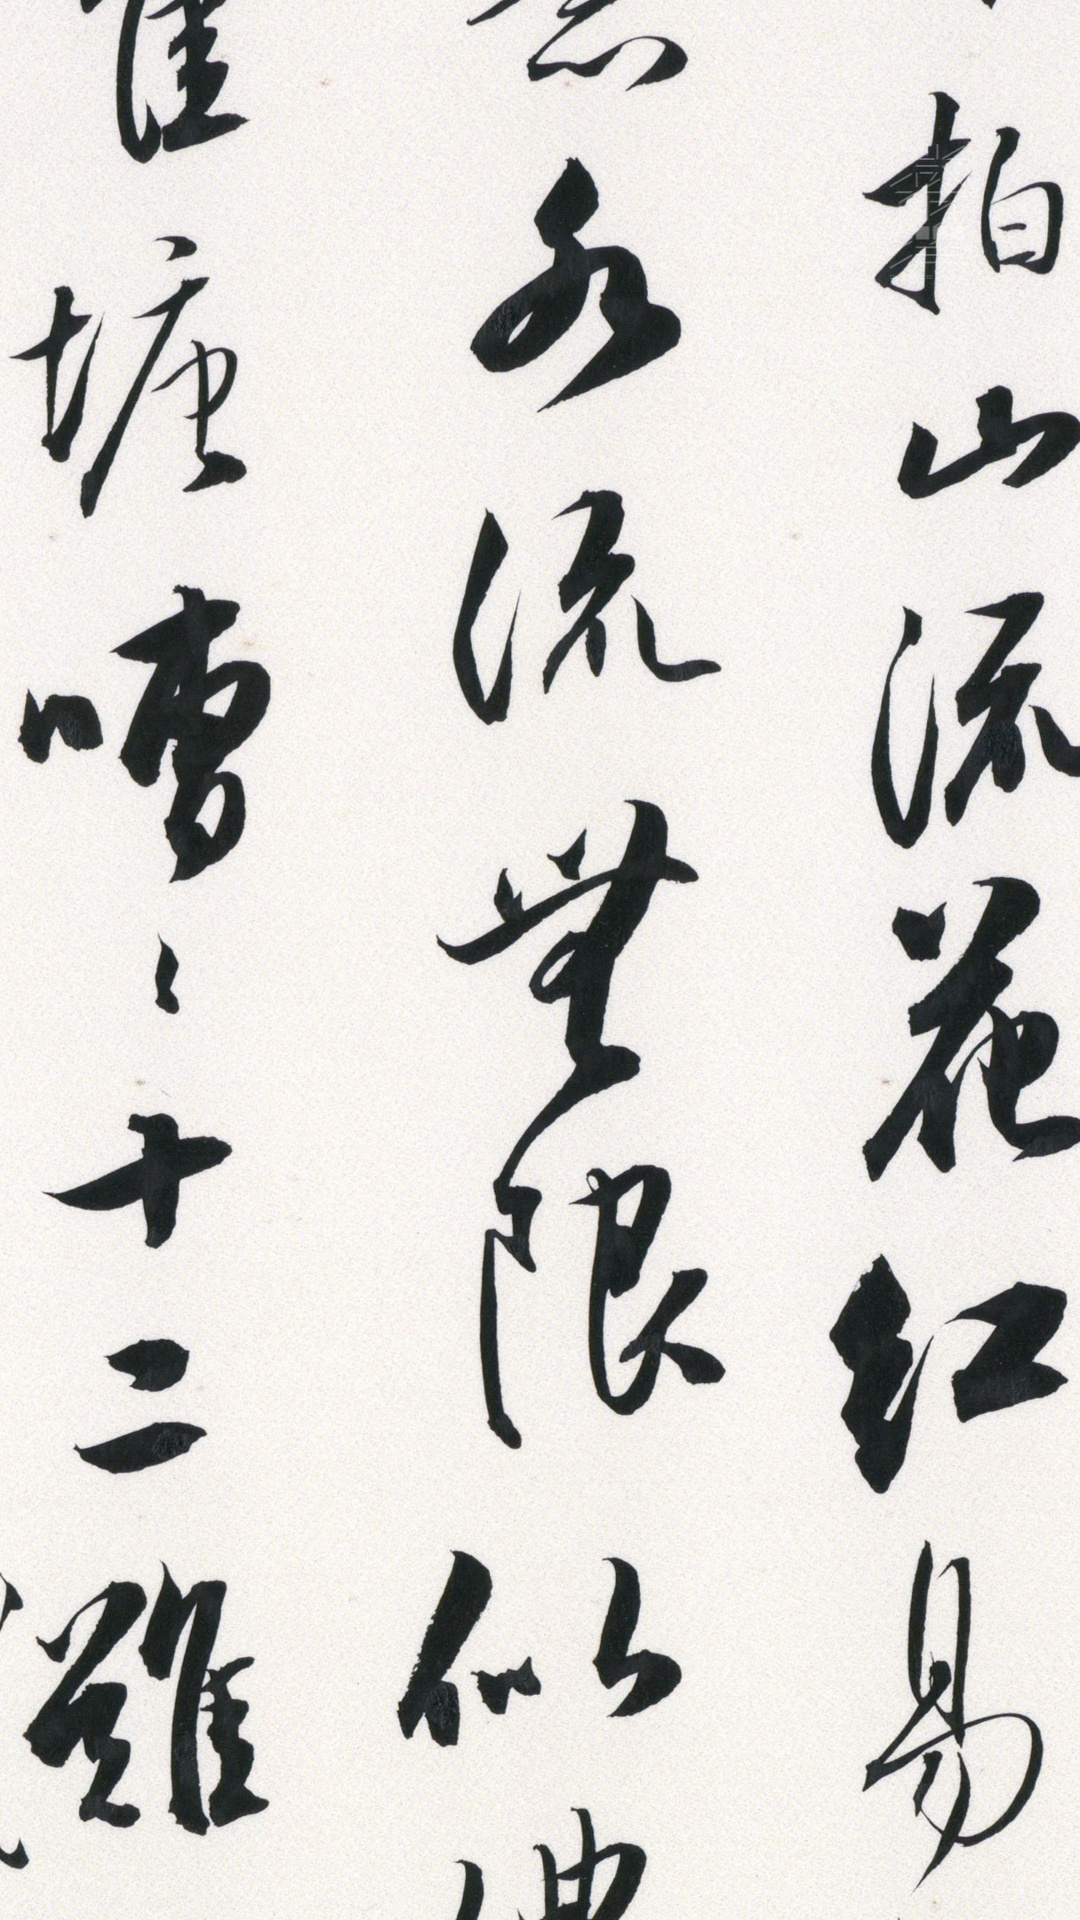 拍山流花红易
意水流無限似儂
瞿塘嘈〻十二難